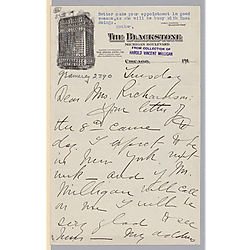 Better make your appointment in good
season, as she will be busy with Bus.
THE BLACKSTONE
MICHIGAN BOULEVARD
FROM COLLECTION OF
HAROLD VINCENT MILLIGAN
CHICAGO,
191
Tuesday
Dear Mrs. Richardson:
Your letter of
the 8th came to
day. I expect to be
in New York next
week - and if Mr.
Milligan will call
on me I will be
very glad to see
him - My address